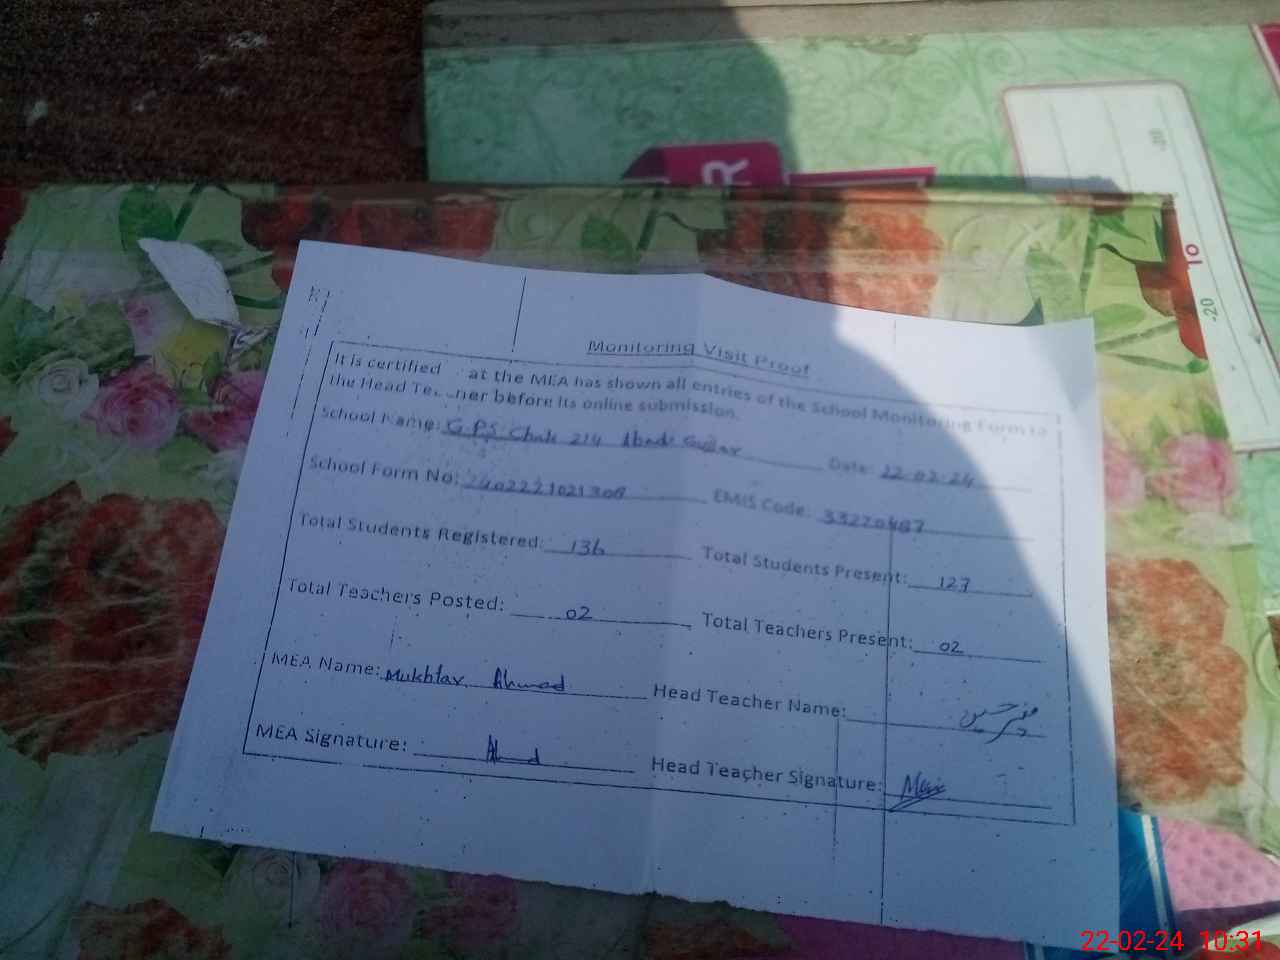 R
10
-10
-20
Monitoring Visit Proof
It is certified at the MEA has shown all entries of the School Monitoring Form to
the Head before its online submission.
School Name: G.P.S Chak 214 Abadi Date: 22.02.24
School Form No: EMIS Code: 33270487
Total Students Registered: 136 Total Students Present: 127
Total Teachers Posted: 02 Total Teachers Present: 02
MEA Name: Mukhtar Ahmad Head Teacher Name:
MEA Signature: Head Teacher Signature:
22-02-24 10:31